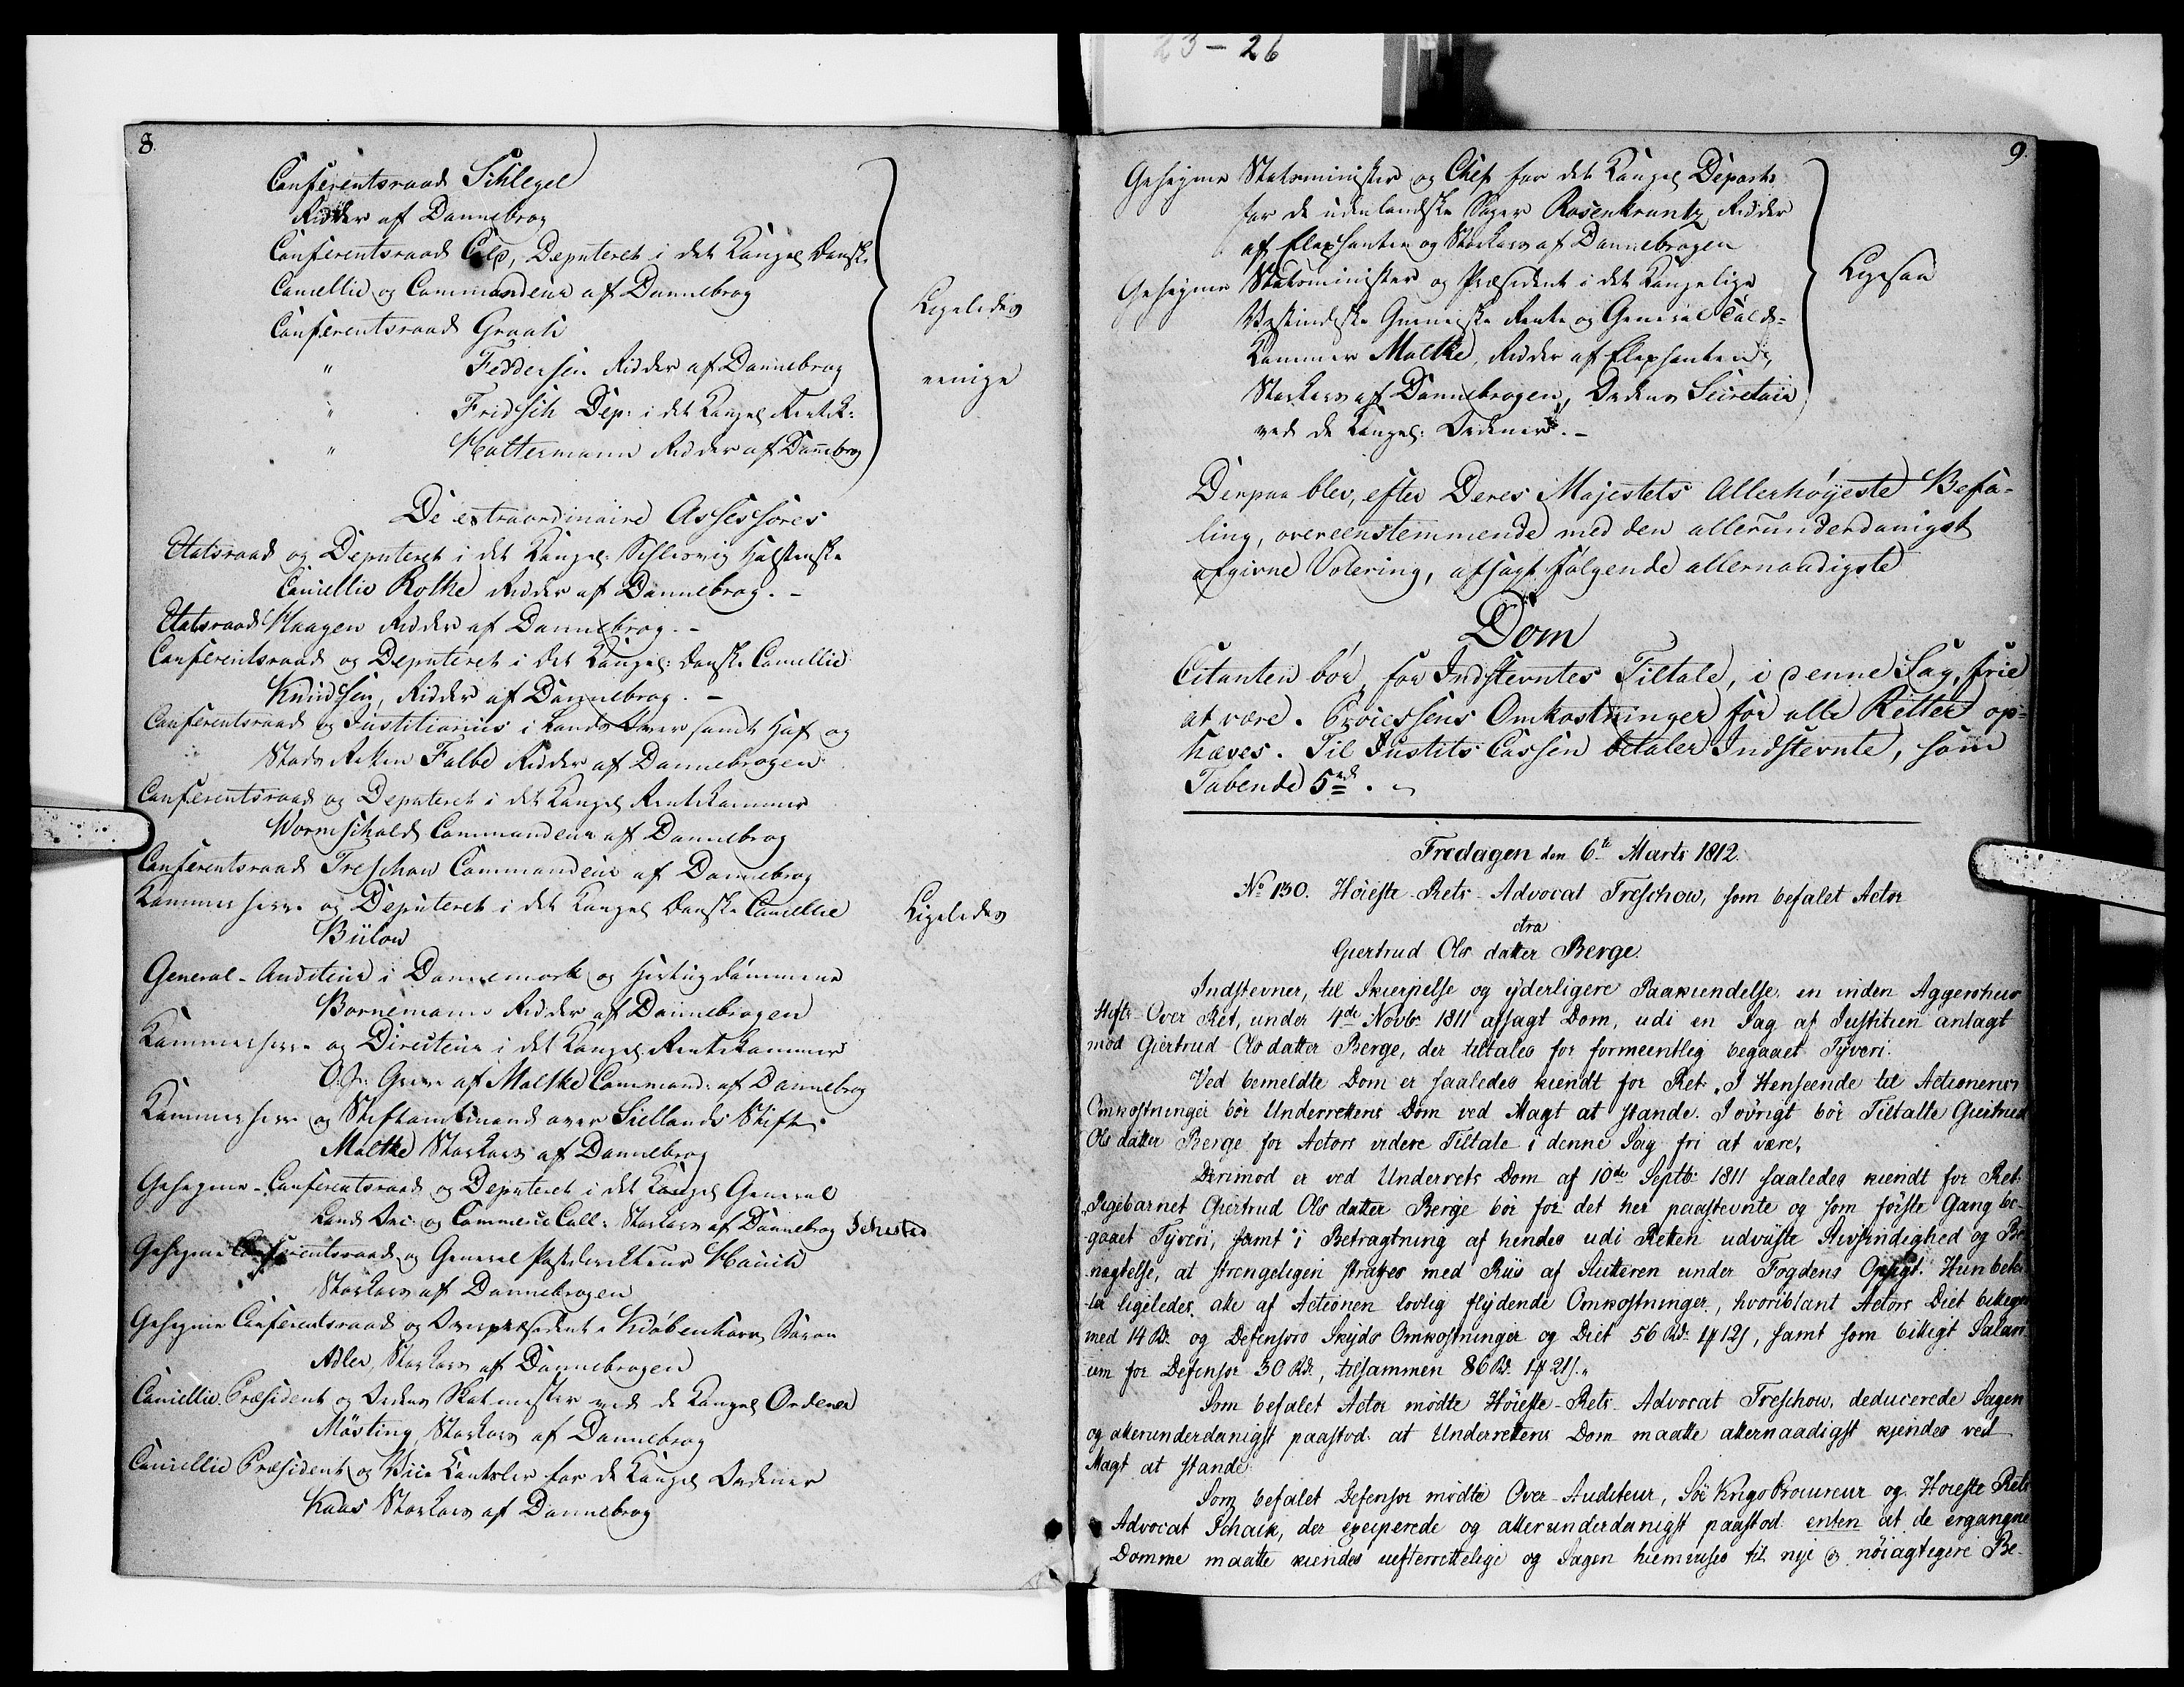 23-26
8.
Conferentsraad Schlegel
Ridder af Dannebrog
Conferentsraad Cold, Deputeret i det Kongel. Danske
Cancellie og Commandeur af Dannebrog
Conferentsraad Graah
" Feddersen Ridder af Dannebrog
" Fridsch Dep: i det Kongel. Rentek:
" Kottermann Ridder af Dannebrog
Ligeledes
eenige
De extraordinaire Assessores
Etatsraad og Deputeret i det Kongel: Schlesvig Holstenske
Cancellie Rothe Ridder af Dannebrog. -
Etatsraad Haagen Ridder af Dannebrog. -
Conferentsraad og Deputeret i det Kongel: danske Cancellie
Knudsen, Ridder af Dannebrog. -
Conferentsraad og Justitiarius i Lands Over samt Hof og
Stads Retten Falbe Ridder af Dannebrogen
Conferentsraad og Deputeret i det Kongel. Rentekammer
Wormschold Commandeur af Dannebrog
Conferentsraad Treschow Commandeur af Dannebrog
Kammerherre og Deputeret i det Kongel. Danske Cancellie
Bülow
Ligeledes
General-Auditeur i Dannemark og Hertugdömmene
Bornemann Ridder af Dannebrogen
Kammerherre og Directeur i det Kongel. Rentekammer
O.J. Greve af Moltke Command: af Dannebrog
Kammerherre og Stiftamtmand over Siellands Stift
Moltke Storkors af Dannebrog
Geheyme-Conferentsraad og Deputeret i det Kongel General
Lands Oec: og Commerce Coll: Storkors af Dannebrog Sehested
Geheyme Conferentsraad og General Postdirecteur Hauch
Storkors af Dannebrogen
Geheyme Conferentsraad og Overpræsident i Kiöbenhavn, Baron
Adler, Storkors af Dannebrogen
Cancellie Præsident og Ordens Skatmester ved de Kongel Ordener
Mösting Storkors af Dannebrog
Cancellie Præsident og Vice Kantsler for de Kongel Ordener
Kaas Storkors af Dannebrog
9.
Geheyme Statsminister og Chef for det Kongel Departt
for de udenlandske Sager Rosenkrantz Ridder
af Elephanten og Storkors af Dannebrogen
Geheyme Statsminister og Præsident i det Kongelige
Vestindiske Guineiske Rente og General Told-
Kammer Moltke, Ridder af Elephanten,
Storkors af Dannebrogen, Ordens Secretair
ved de Kongel: Ordener. -
Ligesaa
Derpaa blev, efter Deres Majestets Allerhöyeste Befa-
ling, overeenstemmende med den allerunderdanigst
afgivne Votering, afsagt følgende allernaadigste
Dom
Citanten bör, for Indstevntes Tiltale, i denne Sag, frie
at være. Processens Omkostninger for alle Retter op-
hæves. Til Justits Cassen betaler Indstevnte, som
Tabende 5 rd.
Fredagen den 6te Marts 1812.
No 130. Höieste-Rets-Advocat Treschow, som befalet Actor
ctra
Giertrud Ols datter Berge.
Indstevner, til Skierpelse og yderligere Paakiendelse, en inden Aggershuus
Stifts-Over Ret, under 4de Novbr 1811 afsagt Dom, udi en Sag af Justitien anlagt
mod Giertrud Ols datter Berge, der tiltales for formeentlig begaaet Tyveri.
Ved bemeldte Dom er saaledes kiendt for Ret: „I Henseende til Actionens
Omkostninger bör Underrettens Dom ved Magt at stande. I övrigt bör Tiltalte Giertrud
Ols datter Berge for Actors videre Tiltale i denne Sag fri at være,
Derimod er ved Underrets Dom af 10de Septbr 1811 saaledes kiendt for Ret:
„Pigebarnet Giertrud Ols datter Berge bör for det her paastevnte og som förste Gang be-
gaaet Tyveri, samt i Betragtning af hendes udi Retten udviiste Stivsindighed og Be-
nægtelse, at strengeligen straffes med Riis af Slutteren under Fogdens Opsigt. Hun beta-
ler ligeledes, alle af Actionen lovlig flydende Omkostninger, hvoriblant Actors Diet billiges
med 14 Rd. og Defensors Skyds Omkostninger og Diet 56 Rd: 1 ℳ 12 ſ, samt som billigt Salari-
um for Defensor 30 Rd., tilsammen 86 Rd. 1 ℳ 2 ſ."
Som befalet Actor mödte Höieste-Rets-Advocat Treschow, deducerede Sagen
og allerunderdanigst paastod: at Underrettens Dom maatte allernaadigst kjendes ved
Magt at stande.
Som befalet Defensor mödte Over-Auditeur, Söe Krigs Procureur og Höieste Rets
Advocat Schack, der exciperede og allerunderdanigst paastod: enten at de ergangne
Domme maatte kiendes uefterrettelige og Sagen hiemvises til nye og nöiagtigere Be-